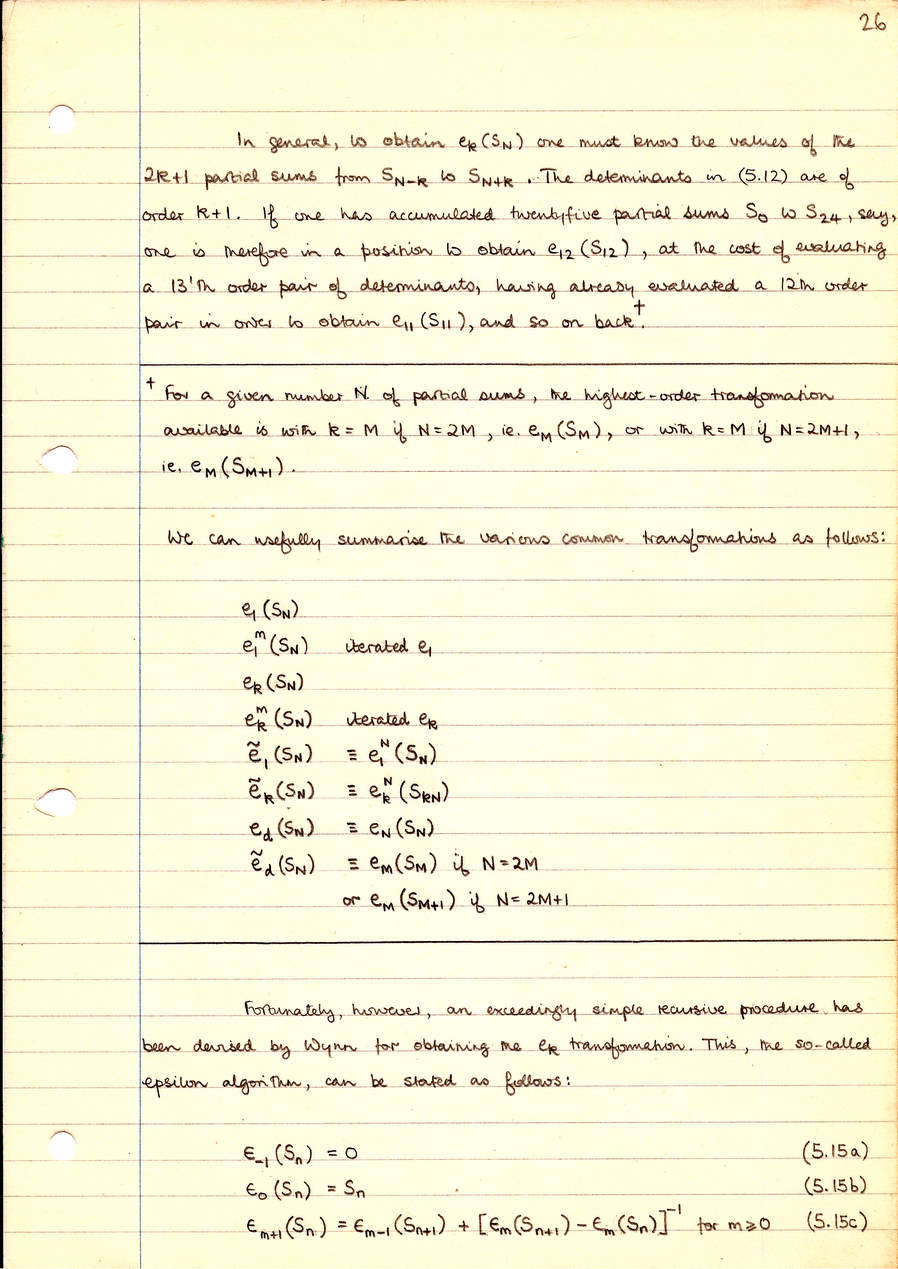 26
In general, to obtain eₖ(S_N) one must know the values of the
2k+1 partial sums from S_{N-k} to S_{N+k}. The determinants in (5.12) are of
order k+1. If one has accumulated twentyfive partial sums S₀ to S₂₄, say,
one is therefore in a position to obtain e₁₂(S₁₂), at the cost of evaluating
a 13'th order pair of determinants, having already evaluated a 12th order
pair in order to obtain e₁₁(S₁₁), and so on back†.
† For a given number N of partial sums, the highest-order transformation
available is with k = M if N=2M, ie. e_M(S_M), or with k=M if N=2M+1,
ie. e_M(S_{M+1}).
We can usefully summarise the various common transformations as follows:
e₁(S_N)
e₁^m(S_N) iterated e₁
eₖ(S_N)
eₖ^m(S_N) iterated eₖ
ẽ₁(S_N) ≡ e₁^N(S_N)
ẽₖ(S_N) ≡ eₖ^N(S_{kN})
e_d(S_N) ≡ e_N(S_N)
ẽ_d(S_N) ≡ e_M(S_M) if N=2M
or e_M(S_{M+1}) if N=2M+1
Fortunately, however, an exceedingly simple recursive procedure has
been devised by Wynn for obtaining the eₖ transformation. This, the so-called
epsilon algorithm, can be stated as follows:
ϵ₋₁(Sₙ) = 0 (5.15a)
ϵ₀(Sₙ) = Sₙ (5.15b)
ϵ_{m+1}(Sₙ) = ϵ_{m-1}(S_{n+1}) + [ϵ_m(S_{n+1}) - ϵ_m(Sₙ)]⁻¹ for m≥0 (5.15c)